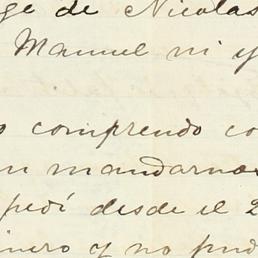 ge de Nicolas
Manuel ni y
o comprendo co
n mandarnos
pedí desde el 2
inero y no pud